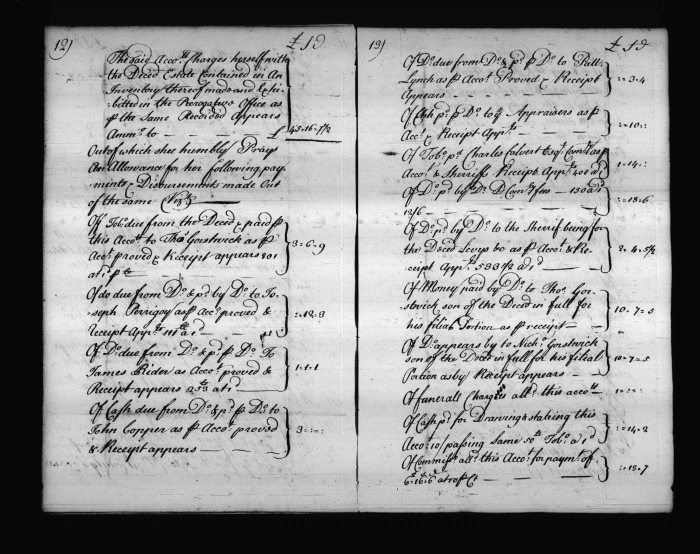 12)
£ S d
The said Accot. Charges herself with
the Deced Estate Contained in An
Inventory thereof made and Exhi-
bitted in the Prerogative Office as
p the Same Recorded Appears
Ammt. to — — — £ 43..16..7½
Out of which she humbly Prays
An Allowance for her following pay-
ments & Disbursements made Out
of the same Vizt.
Of Tobo. due from the Deced & paid p
this Accot. to Thos. Gorstwick as p
Accot. proved & Receipt appears 801
at 1d p lb
3..6..9
Of do due from Do. & pd by Do. to Jo-
seph Perrigoy as p Accot. proved &
Receipt Apprs. at 1d —
Of Do. due from Do. & pd. p Do. To
James Rider as Accot. proved &
Receipt appears 253 lb at 1d
1..1..1
Of Cash due from Do. & pd. p Do. to
John Copper as p Accot. proved
& Receipt appears — — —
3..
13)
£ S d
Of Do. due from Do. & pd. p Do. to
Lynch as p Accot. Proved & Receipt
Appears — — — —
..3..4
Of Cash pd. p Do. to ye Appraisers as p
Accot. & Receipt Apprs. — —
..10..
Of Tobo. pd. Charles Calvert Esqr. Comry. as p
Accot. & Sheriffs Receipt Apprs. at 1d
..14..
Of Do. pd by Do. D. Comrys fees — 150 at 1d
12/6 — — — — —
Of Do. pd. by Do. to the Sherif being for
the Deced Levys &c as p Accot. & Re-
ceipt Apprs. 533½ at 1d — —
2..4..5½
Of Money paid by Do. to Thos. Gor-
stwick son of the Deced in full for
his filial Portion as p receipt —
10..7..5
Of Do. appears by to Nichs. Gorstwich
son of the Deced in full for his filial
Portion as by Receipt appears —
10..7..5
Of funerall Charges alld. this accot. —
Of Cash pd. for Drawing & stating this
Accot. 10/ passing Same 50 lb Tobo. at 1d
..14..2
Of Commissn. alld. this Accot. for paymt. of
6..16..6 at 10 p Ct — — —
..13..7